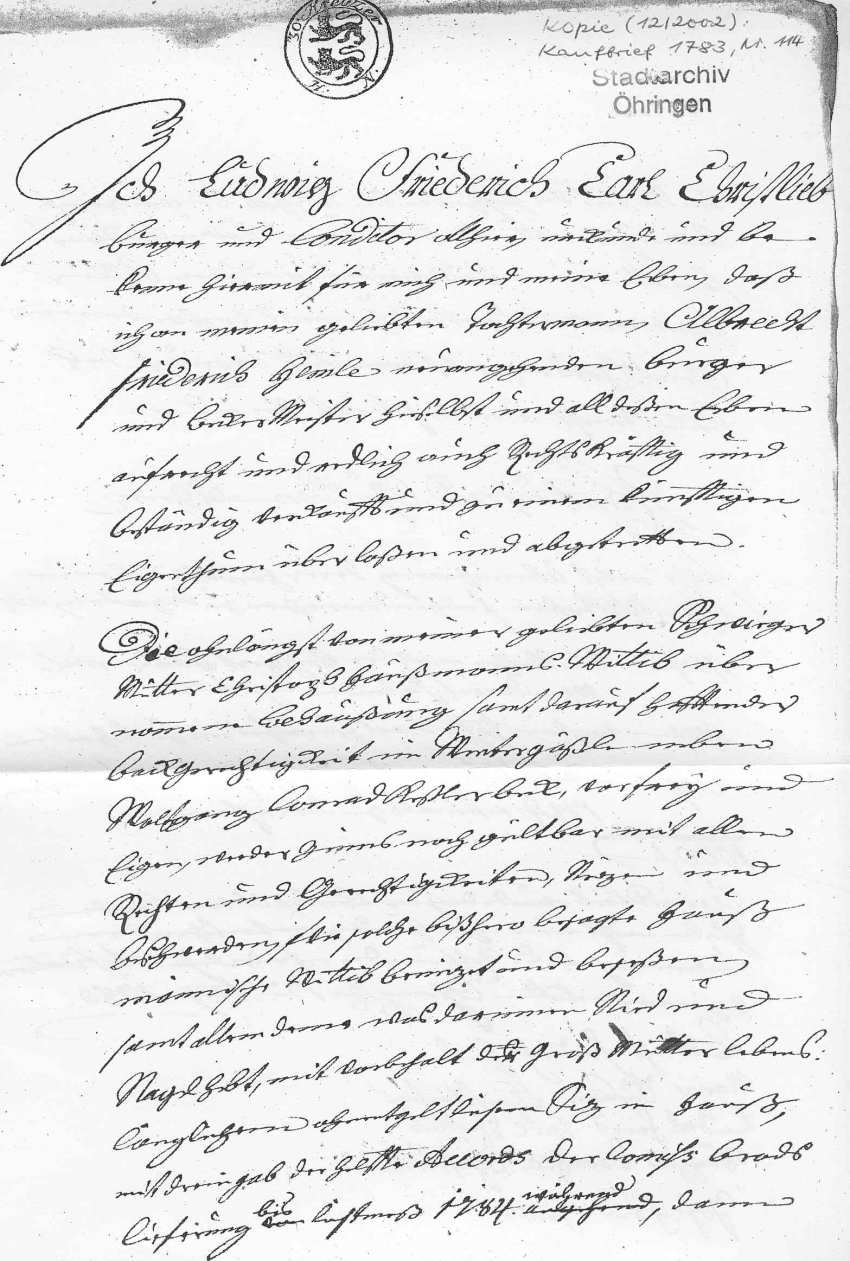 30 Kreuzer
H. N.
Kopie (12/2002).
Kaufbrief 1783, Nr. 114
Stadtarchiv
Öhringen
Ich Ludwig Friederich Carl Christlieb
burger und Conditor allhier, urkunde und be-
kenne hiermit für mich und meine Erben, daß
ich an meinen geliebten Tochtermann, Albrecht
Friederich Hemle neuangehenden burger
und becker Meister hieselbst und all deßen Erben
aufrecht und redlich auch Rechtskräfftig und
beständig verkaufft und zu einem künfftigen
Eigenthum überlaßen und abgetretten.
Die ohnlängst von meiner geliebten Schwieger
Mutter Christoph Haußmanns Wittib über
nommene behaußung samt darauf hafftender
backgerechtigkeit im Wintergäßle neben
Wolfgang Conrad Keßler beck, vor frey und
Eigen, weder Zinns noch gültbar mit allen
Rechten und Gerechtigkeiten, Nuzen und
beschwerden, wie solche bißhero besagte Hauß
männische Wittib benuzet und beseßen,
samt allem deme was darinnen Nied und
Nagel hebt, mit vorbehalt der Groß Mutter lebens:
länglichen ohnentgeltlichen Siz im Hauß,
mit dreingab der helffte Accords der Comiss brods
lieferung bis von lichtmeß 1784. während angehend, dann